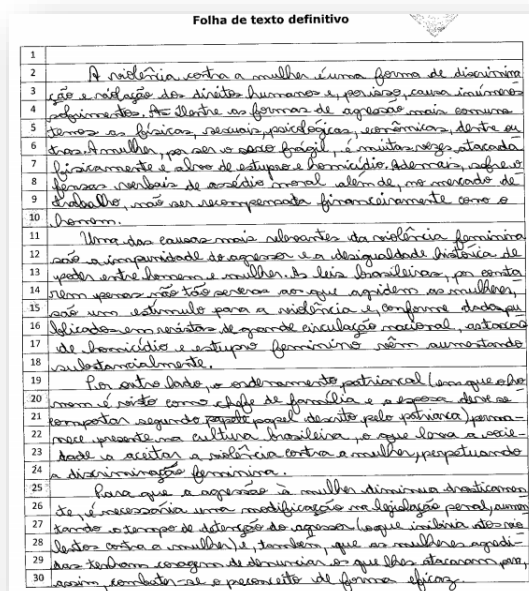 Folha de texto definitivo
1
2 A violência contra a mulher é uma forma de discrimina
3 ção e violação dos direitos humanos e, por isso, causa inúmeros
4 sofrimentos. As dentre as formas de agressão mais comuns
5 temos as físicas, sexuais, psicológicas, econômicas, dentre ou
6 tras. A mulher, por ser o sexo frágil, é muitas vezes atacada
7 fisicamente e alvo de estupro e homicídio. Ademais, sofre o
8 fensas verbais de assédio moral além de, no mercado de
9 trabalho, não ser recompensada financeiramente como o
10 homem.
11 Uma das causas mais relevantes da violência feminina
12 são a impunidade do agressor e a desigualdade histórica de
13 poder entre homem e mulher. As leis brasileiras, por conta
14 rem penas não tão severas aos que agridem as mulheres,
15 são um estímulo para a violência e, conforme dados pu
16 blicados em revistas de grande circulação nacional, as taxas
17 de homicídio e estupro feminino vêm aumentando
18 substancialmente.
19 Por outro lado, o ordenamento patriarcal (em que o ho
20 mem é visto como chefe de família e a esposa deve se
21 comportar segundo papel descrito pelo patriarca) perma
22 nece presente na cultura brasileira, o que leva a socie
23 dade a aceitar a violência contra a mulher, perpetuando
24 a discriminação feminina.
25 Para que a agressão à mulher diminua drasticamen
26 te, é necessária uma modificação na legislação penal, aumen
27 tando o tempo de detenção do agressor (o que inibiria atos vio
28 lentos contra a mulher) e, também, que as mulheres agredi-
29 das tenham coragem de denunciar os que lhes atacaram para,
30 assim, combater-se o preconceito de forma eficaz.